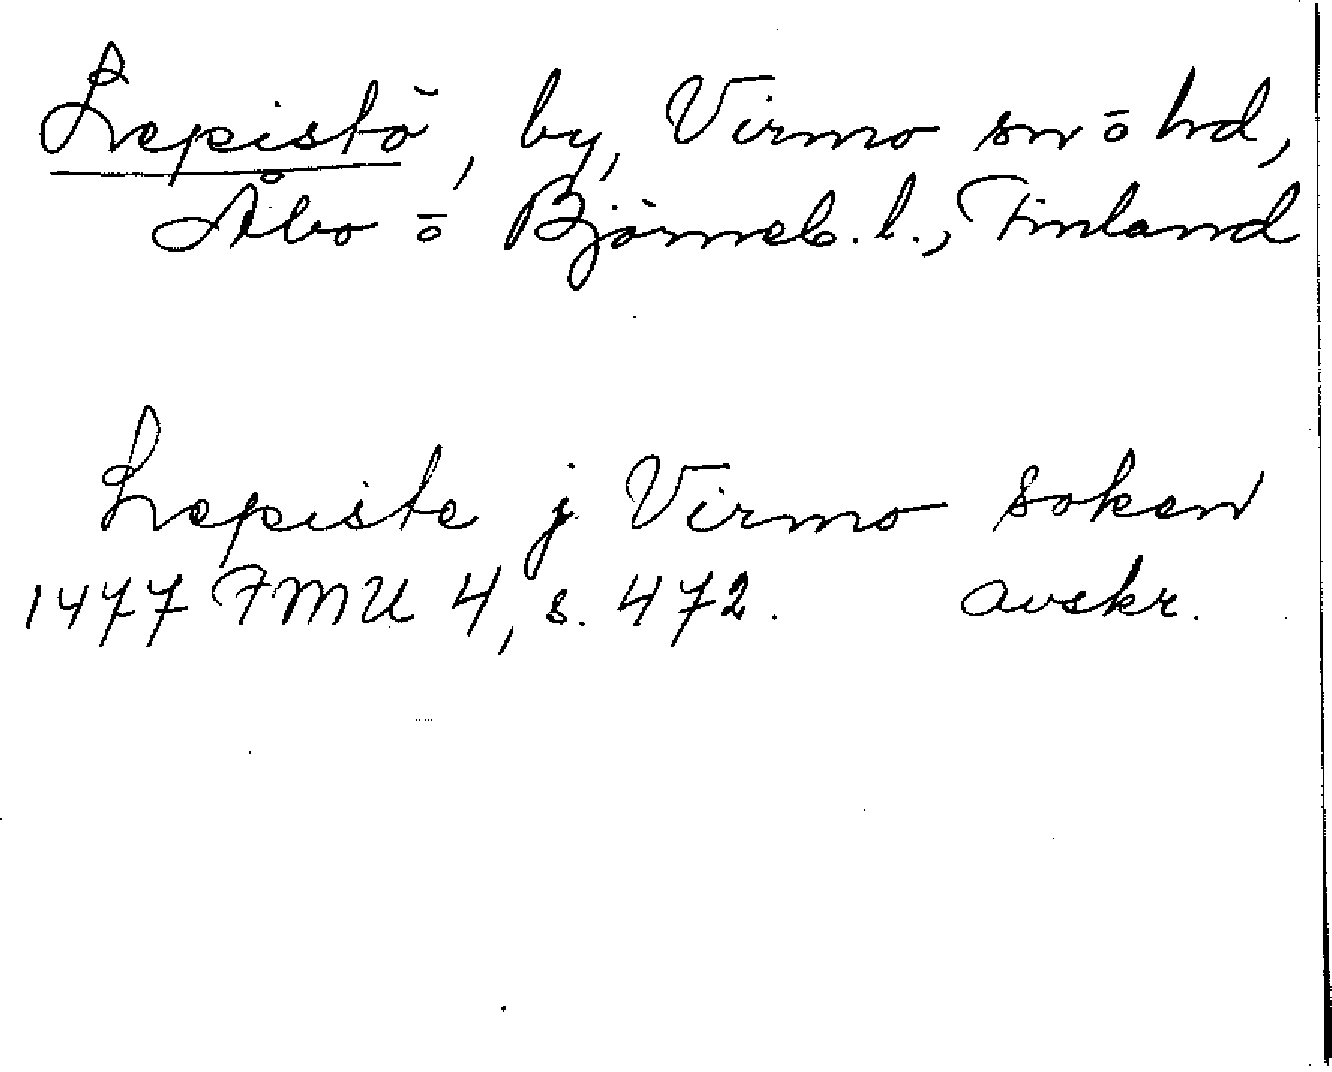 Lepistö, by, Virmo sn ō hd,
Åbo ō Björneb. l., Finland
Lepiste j Virmo soken
1477 FMU 4, s. 472. avskr.